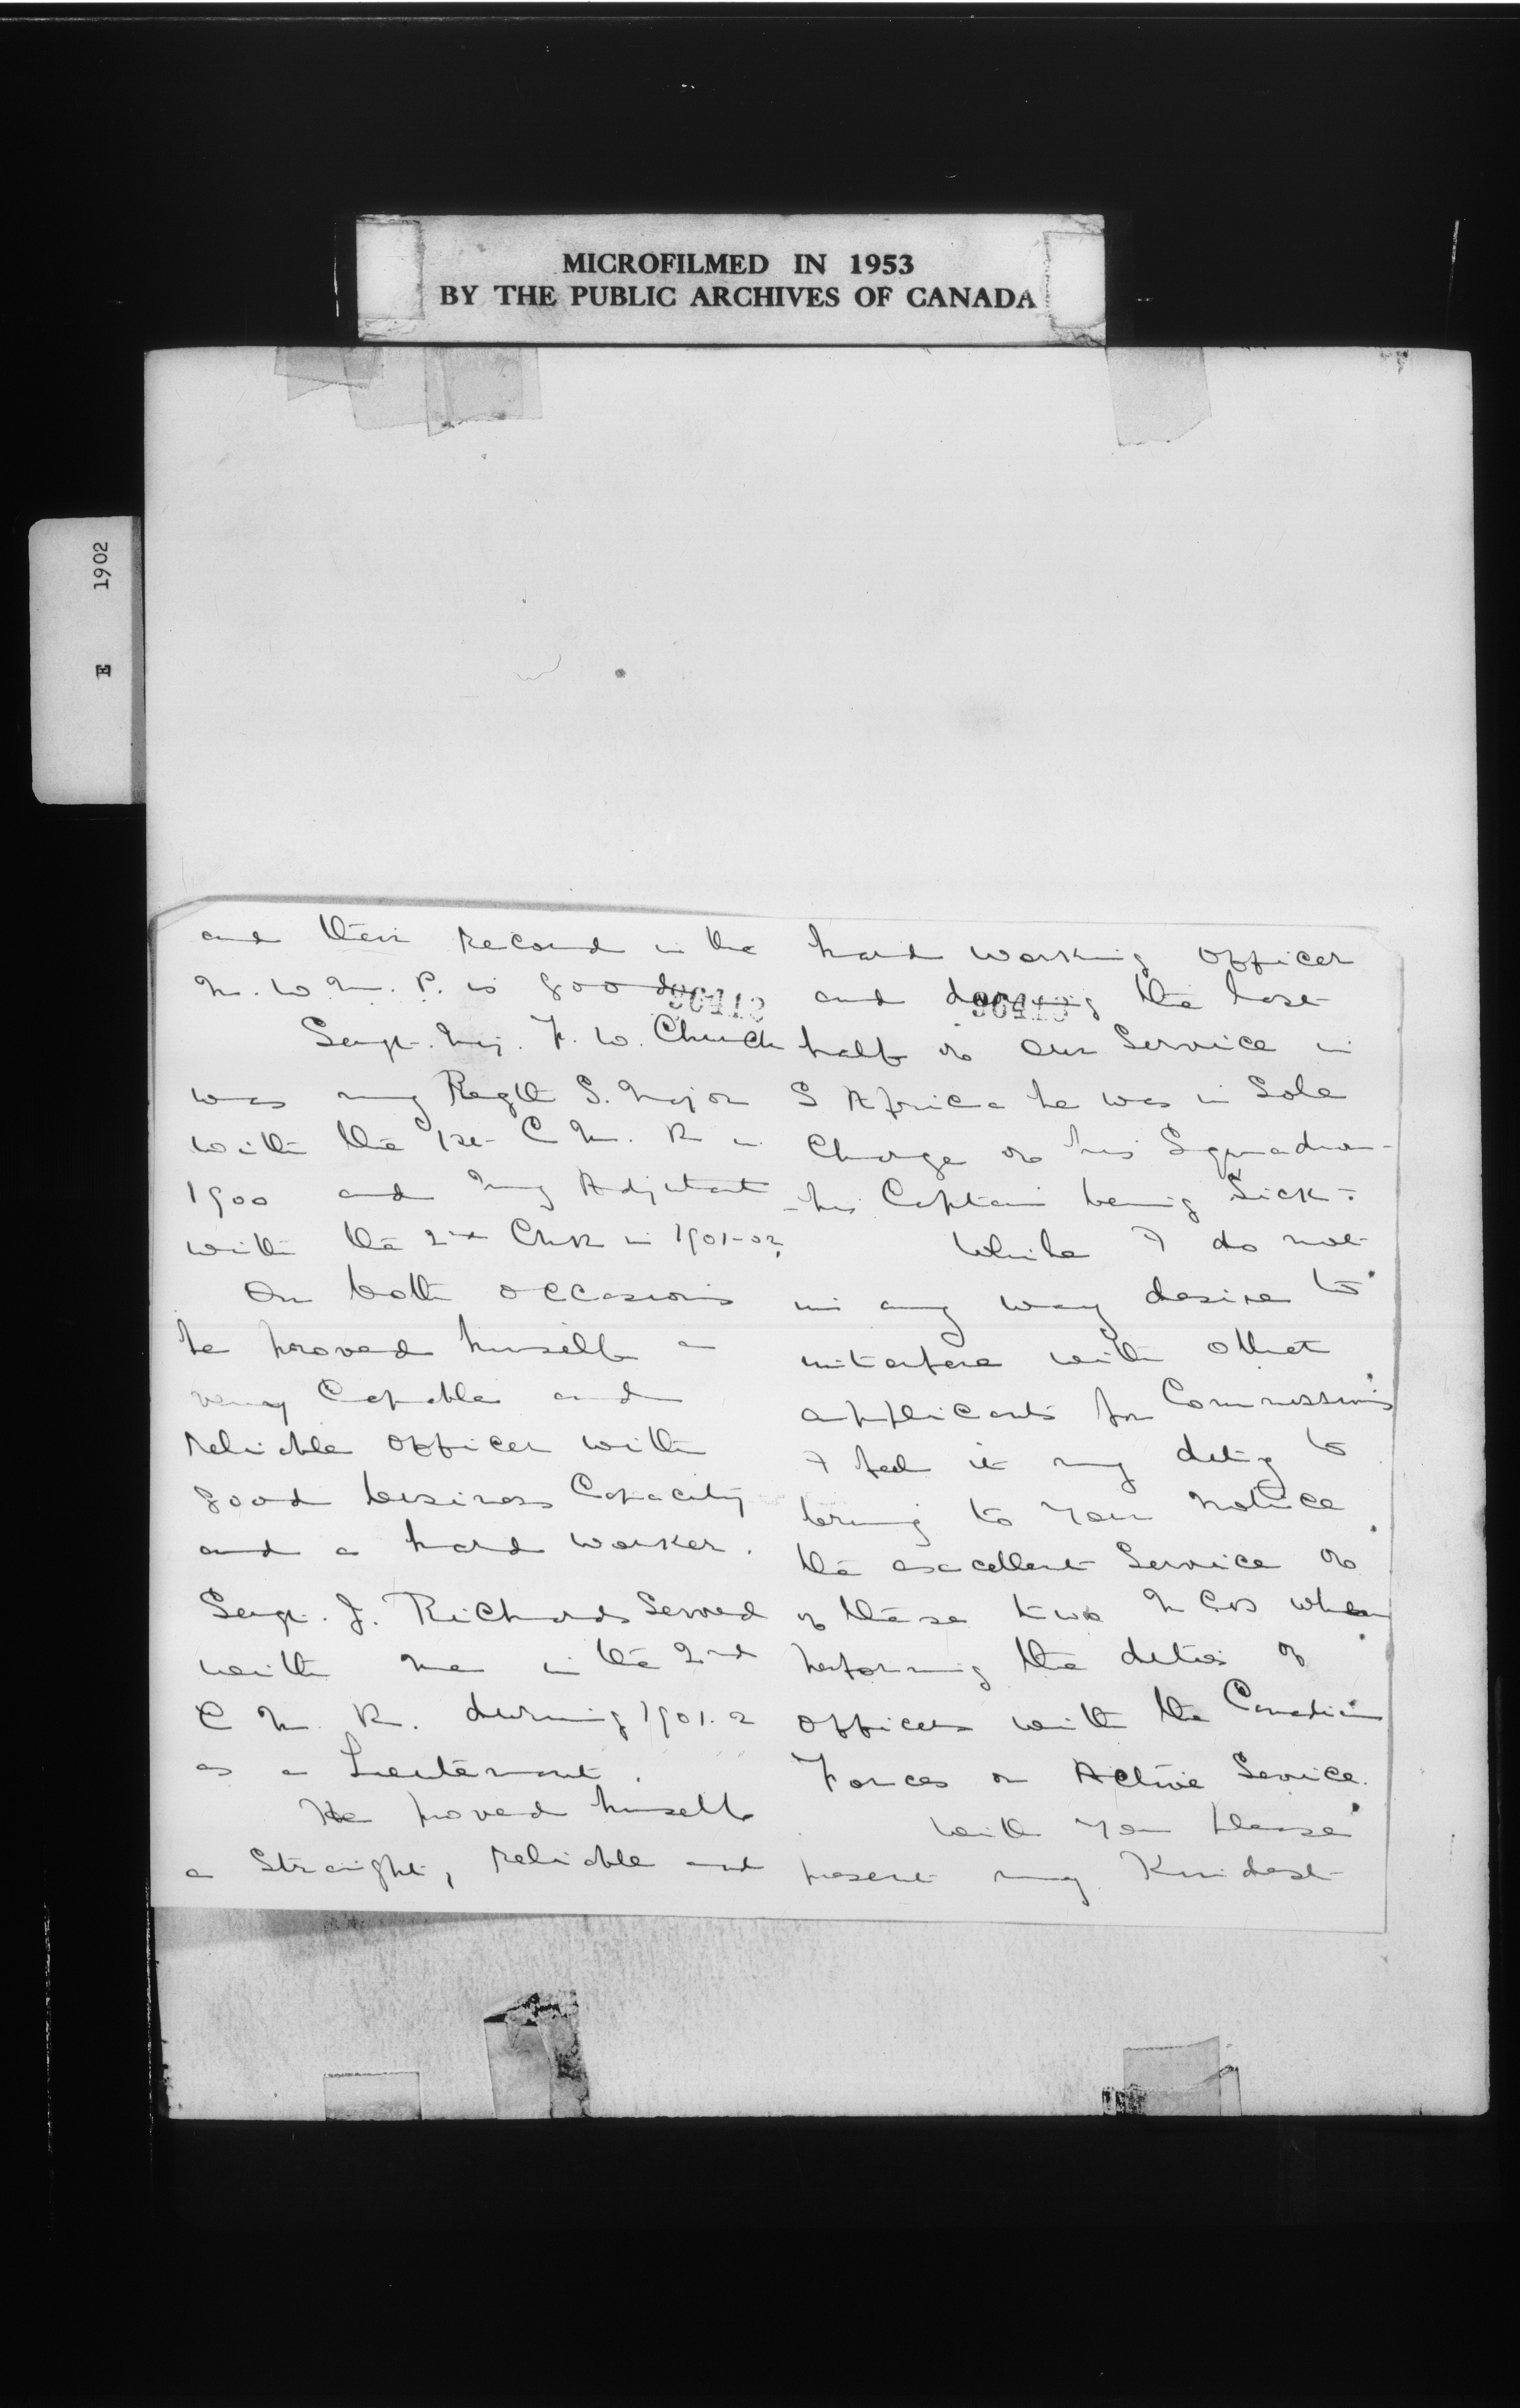 MICROFILMED IN 1953
BY THE PUBLIC ARCHIVES OF CANADA
1902
E
and their record in the
N. W. M. P. is good
96412
Sergt. Maj. F. W. Church
was my Regtl S. Major
with the 1st C M. R in
1900 and my Adjutant
with the 2nd CMR in 1901-02.
On both occasions
he proved himself a
very Capable and
reliable officer with
good business Capacity
and a hard worker.
Sergt. J. Richards Served
with me in the 2nd
C M. R. during 1901.2
as a Lieutenant.
He proved himself
a Straight, reliable and
hard working officer
and during the last
96413
half of our Service in
S Africa he was in Sole
Charge of his Squadron -
- his Captain being Sick -
While I do not
in any way desire to
interfere with other
applicants for Commissions
I feel it my duty to
bring to your notice
the excellent Service of
of these two NCOs when
performing the duties of
officers with the Canadian
Forces on Active Service.
Will you please
present my Kindest